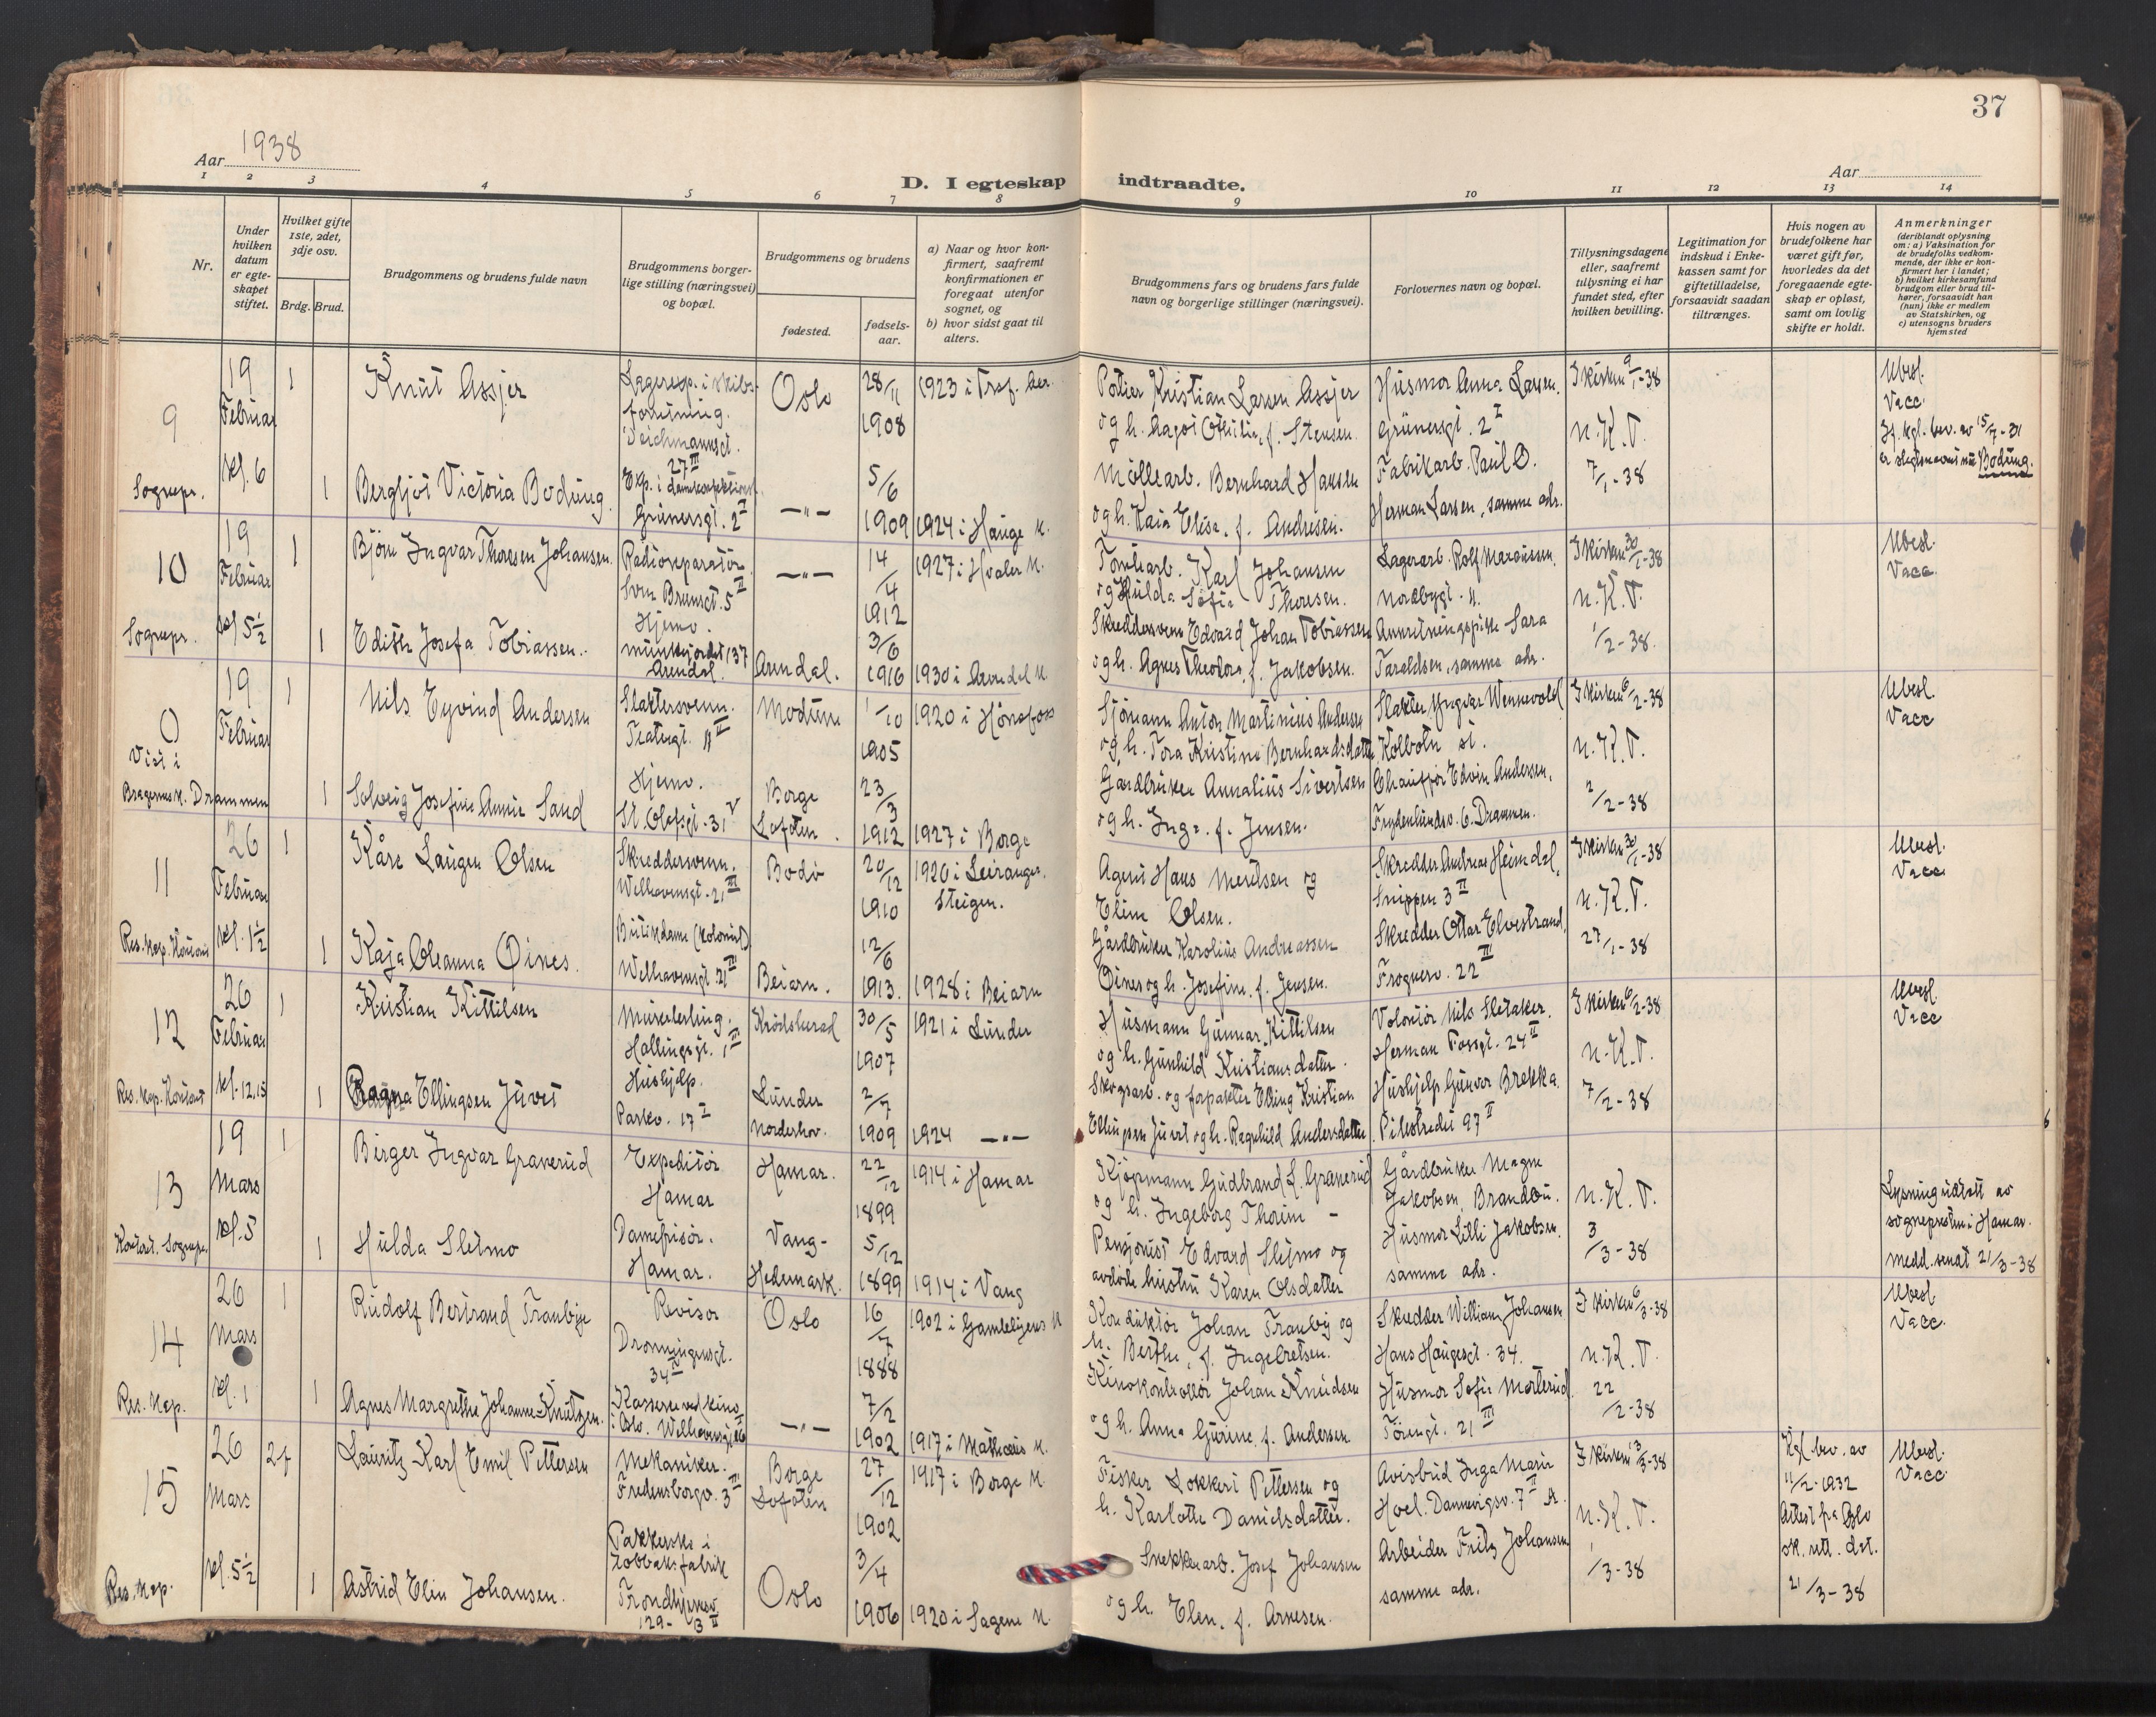 37
Aar 1938
D. I egteskap indtraadte.
Aar
1 2 3 4 5 6 7 8 9 10 11 12 13 14
Nr.
Under hvilken datum er egteskapet stiftet.
Hvilket gifte 1ste, 2det, 3dje osv.
Brdg. Brud.
Brudgommens og brudens fulde navn
Brudgommens borgerlige stilling (næringsvei) og bopæl.
Brudgommens og brudens
fødested.
fødselsaar.
a) Naar og hvor konfirmert, saafremt konfirmationen er foregaat utenfor sognet, og
b) hvor sidst gaat til alters.
Brudgommens fars og brudens fars fulde navn og borgerlige stillinger (næringsvei).
Forlovernes navn og bopæl.
Tillysningsdagene eller, saafremt tillysning ei har fundet sted, efter hvilken bevilling.
Legitimation for indskud i Enkekassen samt for giftetilladelse, forsaavidt saadan tiltrænges.
Hvis nogen av brudefolkene har været gift før, hvorledes da det foregaaende egteskap er opløst, samt om lovlig skifte er holdt.
Anmerkninger
(deriblandt oplysning om: a) Vaksination for de brudefolks vedkommende, der ikke er konfirmert her i landet; b) hvilket kirkesamfund brudgom eller brud tilhører, forsaavidt han (hun) ikke er medlem av Statskirken, og c) utensogns bruders hjemsted
9 Sognepr.
19 Februar kl. 6
1 Knut Assjer
Oslo 28/11 1908
1923 i
Kristian Larsen Assjer
og h. Aagot Othilie, f. Stensen.
Husmor Anna Larsen. Grünersgt. 2 I
I kirken 9/1-38
N.K.T. 7/1-38
Ubesl.
Vacc.
kgl. bev. av 15/7-31
Boding.
1 Bergljot Victoria Boding.
Grünersgt. 2 I
—"—
5/6 1909
1924 i Hauge K.
Møllearb. Bernhard Hansen
og h. Kaia Elise, f. Andresen.
Fabrikarb. Paul O.
Herman Larsen, samme adr.
10 Sognepr.
19 Februar kl 5½
1 Bjørn Ingvar Thoresen Johansen.
Radioreparatør
Sven Brunsgt. 5 II
—"—
14/4 1912
1927 i Hvaler K.
Karl Johansen
og Hulda Sofie Thoresen.
Lagerarb. Rolf
Nordbygt. 11.
I kirken 30/1-38
N.K.T. 1/2-38.
Ubesl.
Vacc.
1 Edith Josefa Tobiassen.
Hjemv.
Arendal
Arendal.
3/6 1916
1930 i Arendal K.
Skreddersvenn Edvard Johan Tobiassen
og h. Agnes Theodora, f. Jakobsen.
Sara
Taraldsen, samme adr.
0 Viet i Bragernes k. Drammen
19 Februar
1 Nils Eyvind Andersen
Slaktersvenn.
Modum
1/10 1905
1920 i Hønefoss
Sjømann Anton Martinius Andersen
og h. Tora Kristine Bernhardsdatter
Slakter Yngvar Wennevold
Kolbotn st.
I kirken 6/2-38
N.K.T. 2/2-38
Ubesl.
Vacc
1 Solveig Josefine Annie Sand
Hjemv.
St. Olafsgt. 31 V
Borge Lofoten.
23/3 1912
1927 i Borge
Gårdbruker Annanius Sivertsen
og h. Inga f. Jensen.
Chauffør Edvin Andersen,
Frydenlundsv. 6. Drammen.
11 Res. kap. Kontoret
26 Februar kl. 1½
1 Kåre Laugen Olsen
Skreddersvenn.
Welhavensgt. 21 III
Bodø
20/12 1910
1926 i Leiranger, Steigen.
Agent Hans Mentsen og
Eline Olsen.
Skredder Andreas Heimdal,
Snippen 3 II
I kirken 30/1-38
N.K.T. 27/1-38
Ubesl.
Vacc
1 Kaja Oleanna Øines.
Butikdame (kolonial)
Welhavensgt. 21 III
Beiarn.
12/6 1913.
1928 i Beiarn
Gårdbruker Karolius Andreassen
Øines og h. Josefine, f. Jensen.
Skredder Ottar Elvestrand,
Frognerv. 22 III
12 Res. kap. Kontoret
26 Februar kl. 12,15
1 Kristian Kittilsen
Murerlærling.
Hallingsgt. 1 III
Krødsherad
30/5 1907
1921 i Lunder
Husmann Gunnar Kittilsen
og h. Gunhild Kristiansdatter.
Volontør Nils Sletaker.
Herman Fossgt. 24 II
I kirken 6/2-38
N.K.T. 7/2-38
Ubesl.
Vacc
1 Ragna Ellingsen Juvet
Hushjelp.
Parkv. 17 I
Lunder Norderhov.
2/7 1909
1924 —"—
Skogsarb. og forpakter Elling Kristian
Ellingsen Juvet og h. Ragnhild Andersdatter
Hushjelp Gunvor Brekka.
Pilestredet 97 II
13 Kontoret. Sognepr.
19 Mars kl. 5
1 Birger Ingvar Graverud
Expeditør
Hamar
Hamar.
22/12 1899
1914 i Hamar
Kjøpmann Gudbrand L. Graverud
og h. Ingeborg Thorine -
Gårdbruker Magne
Jakobsen, Brandbu.
N.K.T. 3/3-38
Lysning utstett av
sognepresten i Hamar.
medd. sendt 21/3-38
1 Hulda Sletmo
Damefrisør.
Hamar.
Vang - Hedemark.
5/12 1899
1914 i Vang
Pensjonist Edvard Sletmo og
avdøde hustru Karen Olsdatter
Husmor Lilli Jakobsen.
samme adr.
14 Res. kap.
26 Mars kl. 1
1 Rudolf Bertrand Tranbye
Revisor
Dronningensgt. 34 IV
Oslo
16/7 1888
1902 i Gamlebyens K
Konduktør Johan Tranby og
h. Berthe, f. Ingebretsen.
Skredder William Johansen
Hans Haugesgt. 34.
I kirken 6/3-38
N.K.T. 22/2-38
Ubesl.
Vacc.
1 Agnes Margrethe Johanne Knutzen.
Kasserer ved kino
i Oslo. Welhavensgt.
—"—
7/2 1902
1917 i Mathæus K.
Kinokontrollør Johan Knudsen
og h. Anna Gurine, f. Andersen
Husmor Sofie Morterud
21 III
15 Res. kap.
26 Mars kl. 5½
2 f Lauritz Karl Emil Pettersen
Mekaniker.
Fredensborgv. 3 III
Borge Lofoten
27/12 1902
1917 i Borge K.
Fisker Lokkert Pettersen og
h. Karlotte Danielsdatter.
Avisbud Inga Marie
Hoel. Dannevigsv. 7 II A.
I kirken 13/3-38
N.K.T. 1/3-38
Kgl. bev. av
11/2-1932
Attest fra Oslo
sk. rett. dat.
21/3-38
Ubesl.
Vacc.
1 Astrid Elin Johansen.
Pakkerske i
tobbaksfabrik
Trondhjemsv.
129- 3 II
Oslo
3/4 1906
1920 i Sagene K.
Snekkerarb. Josef Johansen
og h. Elen, f. Arnesen.
Arbeider Fritz Johansen
samme adr.